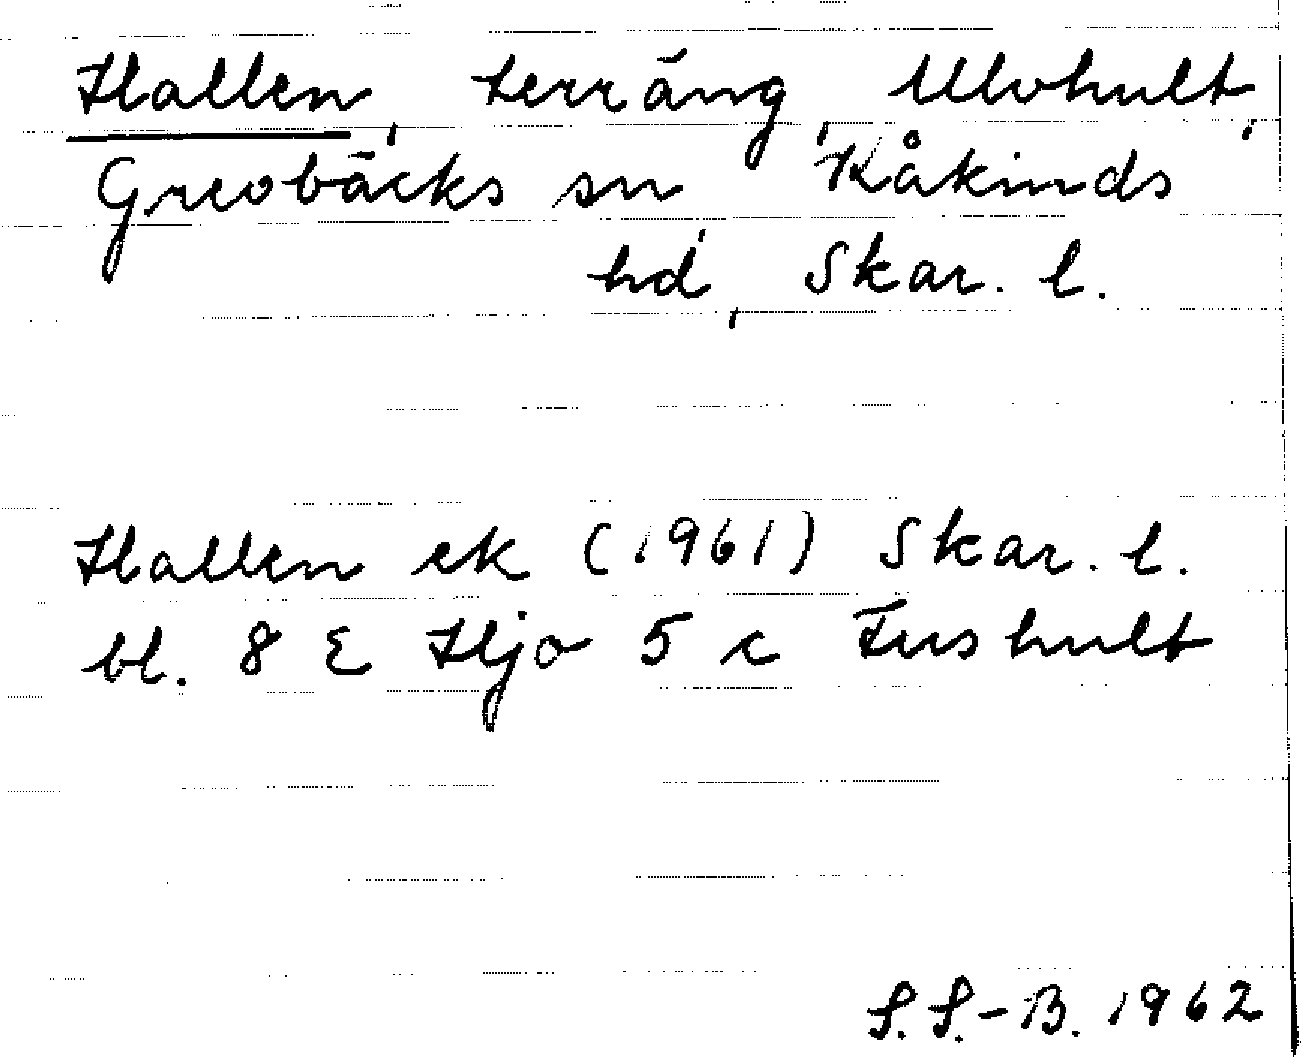 Hallen, terräng, Ulvhult,
Grevbäcks sn, Kåkinds
hd, Skar. l.
Hallen ek (1961) Skar. l.
bl. 8 E Hjo 5 c Fushult
S. S.-B. 1962